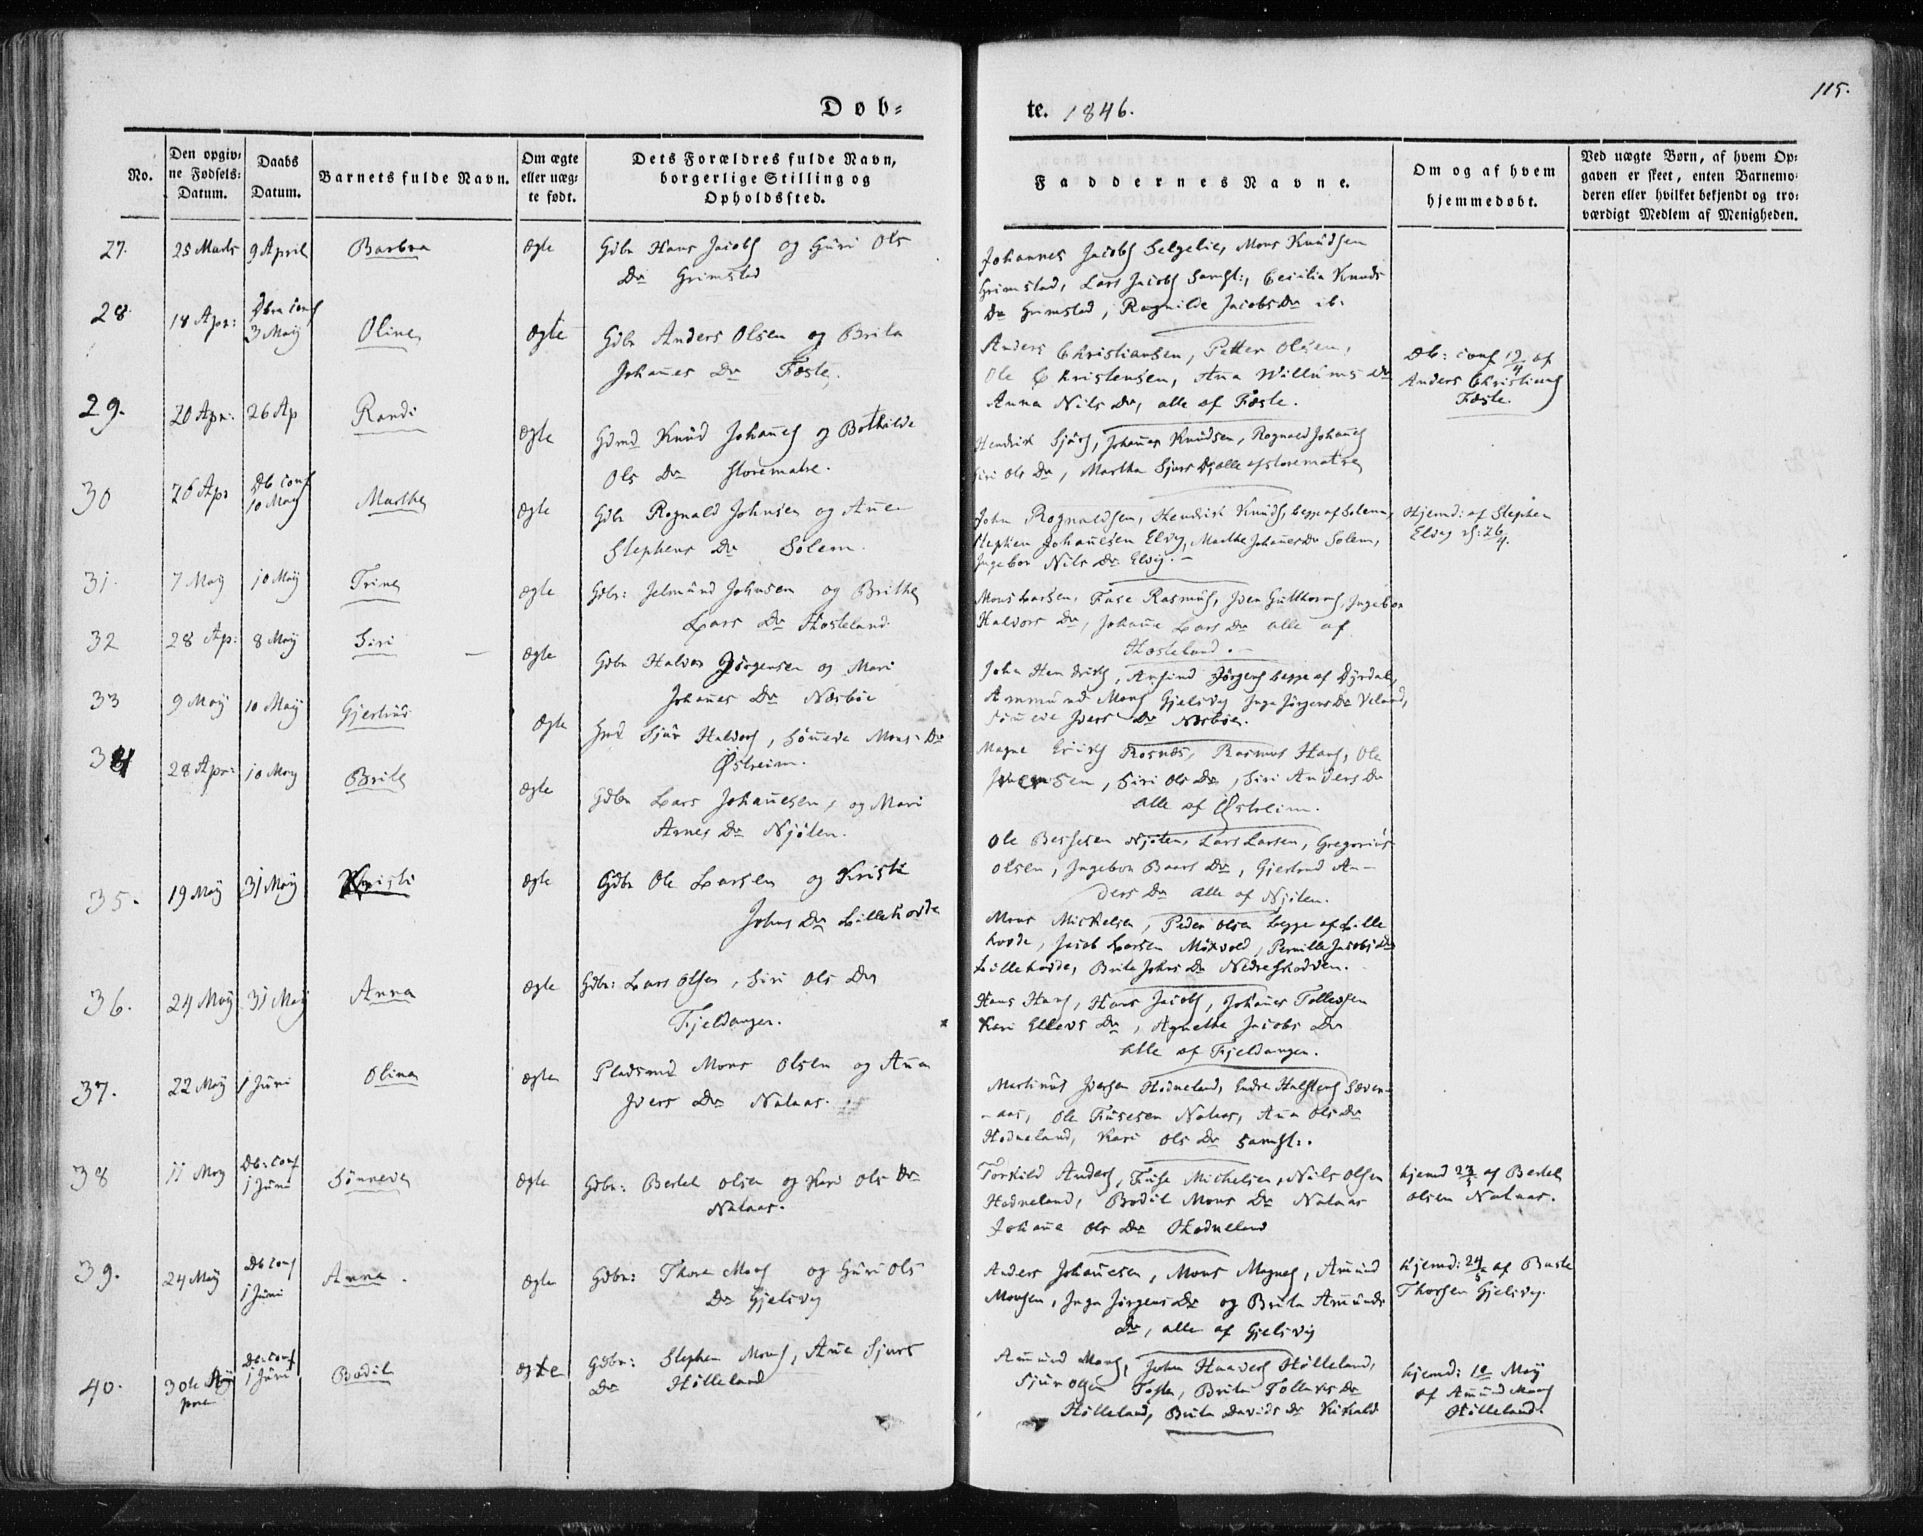 115.
Døb=
te. 1846.
No.
Den opgiv=
ne Fødsels=
Datum.
Daabs
Datum.
Barnets fulde Navn.
Om ægte
eller uæg=
te født.
Dets Forældres fulde Navn,
borgerlige Stilling og
Opholdssted.
Faddernes Navne.
Om og af hvem
hjemmedøbt.
Ved uægte Børn, af hvem Op=
gaven er skeet, enten Barnemo=
deren eller hvilket bekjendt og tro=
værdigt Medlem af Menigheden.
27. 25 Marts 9 April Barbra ægte Gdbr Hans Jacobs og Guri Ols
Dr Grimstad
Johannes Jacobs Selgelie, Mons Knudsen
Grimstad, Lars Jacobs Samst:, Cecilia Knuds
Dr Grimstad, Ragnilde Jacobs Dr ib.
28. 18 Apr: Dbn conf
3 Maij Oline ægte Gdbr Anders Olsen og Brita
Johanes Dr Fæste.
Anders Christiansen, Petter Olsen,
Ole Christensen, Ana Willums Dr
Anna Nils Dr, alle af Fæste.
Db: conf 19/4 af
Anders Christians
Fæste.
29. 20 Apr: 26 Ap Randi ægte Gdmd Knud Johanes og Bothilde
Ols Dr Storematre.
Hendrik Sjurs, Johanes Knudsen, Rognald Johanes
Siri Ols Dr, Martha Sjurs Dr, alle af Storematre
30 26 Apr Db conf
10 May Marthe ægte Gdbr Rognald Johnsen og Anna
Stephens Dr Solem.
John Rognaldsen, Hendrik Knuds, begge af Solem,
Stephen Johanesen Elvig, Marthe Johanes Dr Solem,
Ingebor Nils Dr Elvig.
Hjemd: af Stephen
Elvig d: 26/4.
31. 7 May 10 Maij Trine ægte Gdbr: Jelmund Johnsen og Brithe
Lars Dr Hosteland.
Mons Larsen, Fuse Rasmus, Iver Gutthorms, Ingebor
Halvors Dr, Johane Lars Dr alle af
Hosteland.
32 28 Ap: 8 Maij Siri ægte Gdbr Halvor Jörgensen og Mari
Johanes Dr Næsböe
John Hendriks, Anfind Jörgens begge af Dyrdal,
Ammund Mons Gjelsvig Inga Jörgens Dr Veland,
Sönneve Ivers Dr Næsböe.
33 9 Maij 10 Maij Gjertrud ægte Gmd Sjur Halvors, Sönneva Mons Dr
Østreim.
Magne Eriks Rosnæs, Rasmus Hans, Ole
Iversen, Siri Ols Dr, Siri Anders Dr
alle af Østreim.
34 28 Apr: 10 May Brite ægte Gdbr Lars Johanesen, og Mari
Arnes Dr Njöten.
Ole Bessesen Njöten, Lars Larsen, Gregorius
Olsen, Ingebor Baars Dr, Gjertrud An-
ders Dr alle af Njöten.
35. 19 Maij 31 Maij Kristi ægte Gdbr Ole Larsen og Kristi
Johns Dr Lillehovde
Mons Mickelsen, Peder Olsen begge af Lille
hovde, Jacob Larsen Möxvold, Pernille Jacobs Dr
Lillehovde, Brite Johns Dr Nedreskodven.
36. 24 Maij 31 Maij Anna ægte Gdbr: Lars Olsen, Siri Ols Dr
Fjeldanger.
Hans Hans, Hans Jacobs, Johanes Tollevsen
Kari Ellevs Dr, Agnethe Jacobs Dr
alle af Fjeldanger.
37. 22 Maij 1 Juni Olina ægte Pladsmd Mons Olsen og Ana
Ivers Dr Nataas.
Martinus Iversen Hodneland, Endre Halstens Sæven
-aas, Ole Fusesen Nataas, Ana Ols Dr
Hodneland, Kari Ols Dr Samst:.
38 11 May Db: conf
1 Juni Sönneve ægte Gdbr: Bertel Olsen og Kari Ols Dr
Nataas.
Torkild Anders, Fuse Mickelsen, Nils Olsen
Hodneland, Bodil Mons Dr Nataas
Johane Ols Dr Hodneland
hjemd 23/5 af Bertel
Olsen Nataas.
39. 24 Maij Db conf
1 Juni Anna. ægte Gdbr: Thore Mons og Guri Ols
Dr Gjelsvig
Anders Johanesen, Mons Magnes, Amund
Monsen, Inga Jörgens Dr og Brita Amunds
Dr, alle af Gjelsvig
hjemd: 24/5 af
Thorsen Gjelsvig.
40. 30te Apr Db: conf
1 Juni Bodil ægte Gdbr: Stephen Mons, Ana Sjurs
Dr Hölleland
Amund Mons, John Haavers Hölleland,
Sjur Olsen Foster, Brita Tollevs Dr
Hölleland, Brita Davids Dr
hjemd: 1e Maij
af Amund Mons
Hölleland.